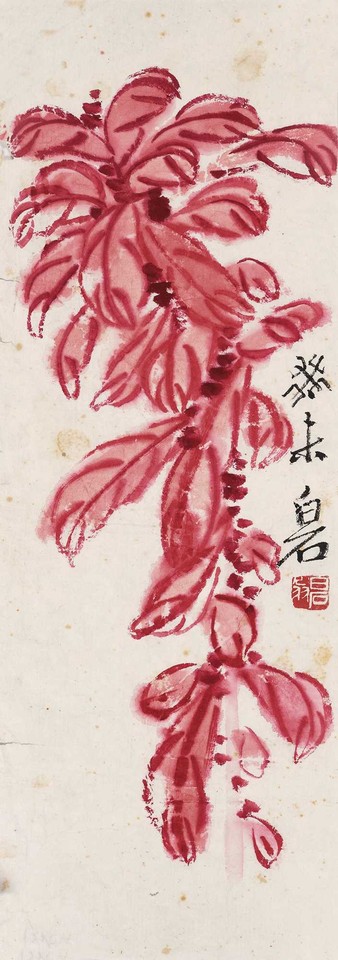 癸未白石
白石翁